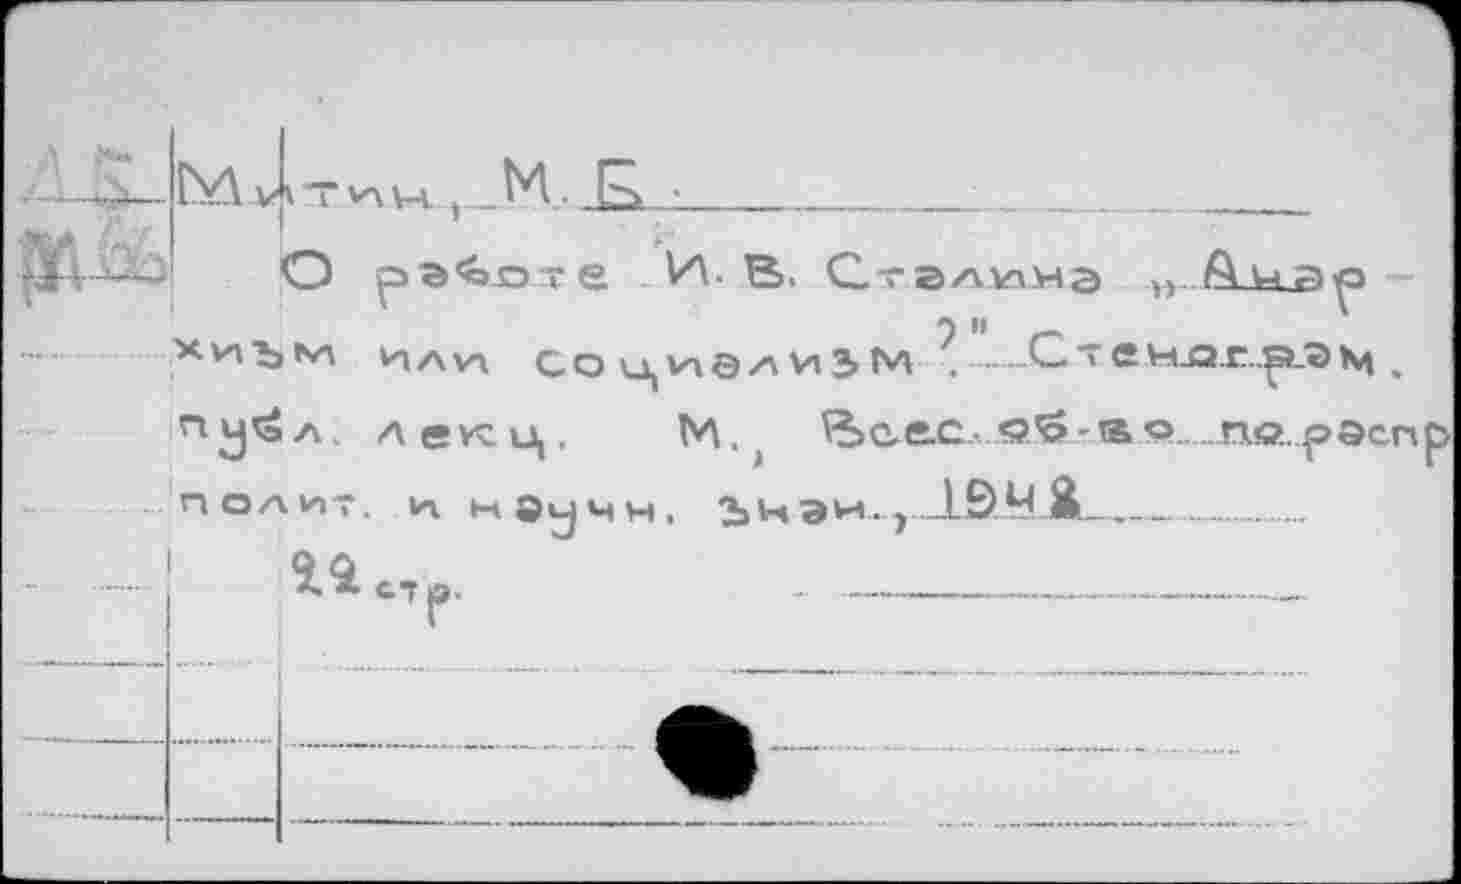 Митин, М. Б.
О работе И. В. Сталина „Анар-
хизм или социализм?" Стенограм.
публ. лекц. М., Всес. об-во по распр
полит. и научн. знан., 1948
22 стр.